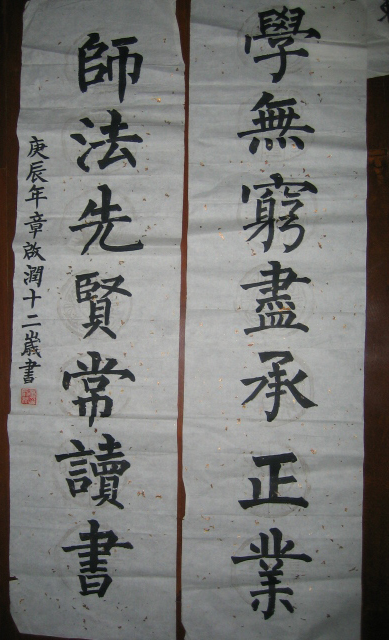 學無窮盡承正業
師法先賢常讀書
庚辰年章啟潤十二歲書